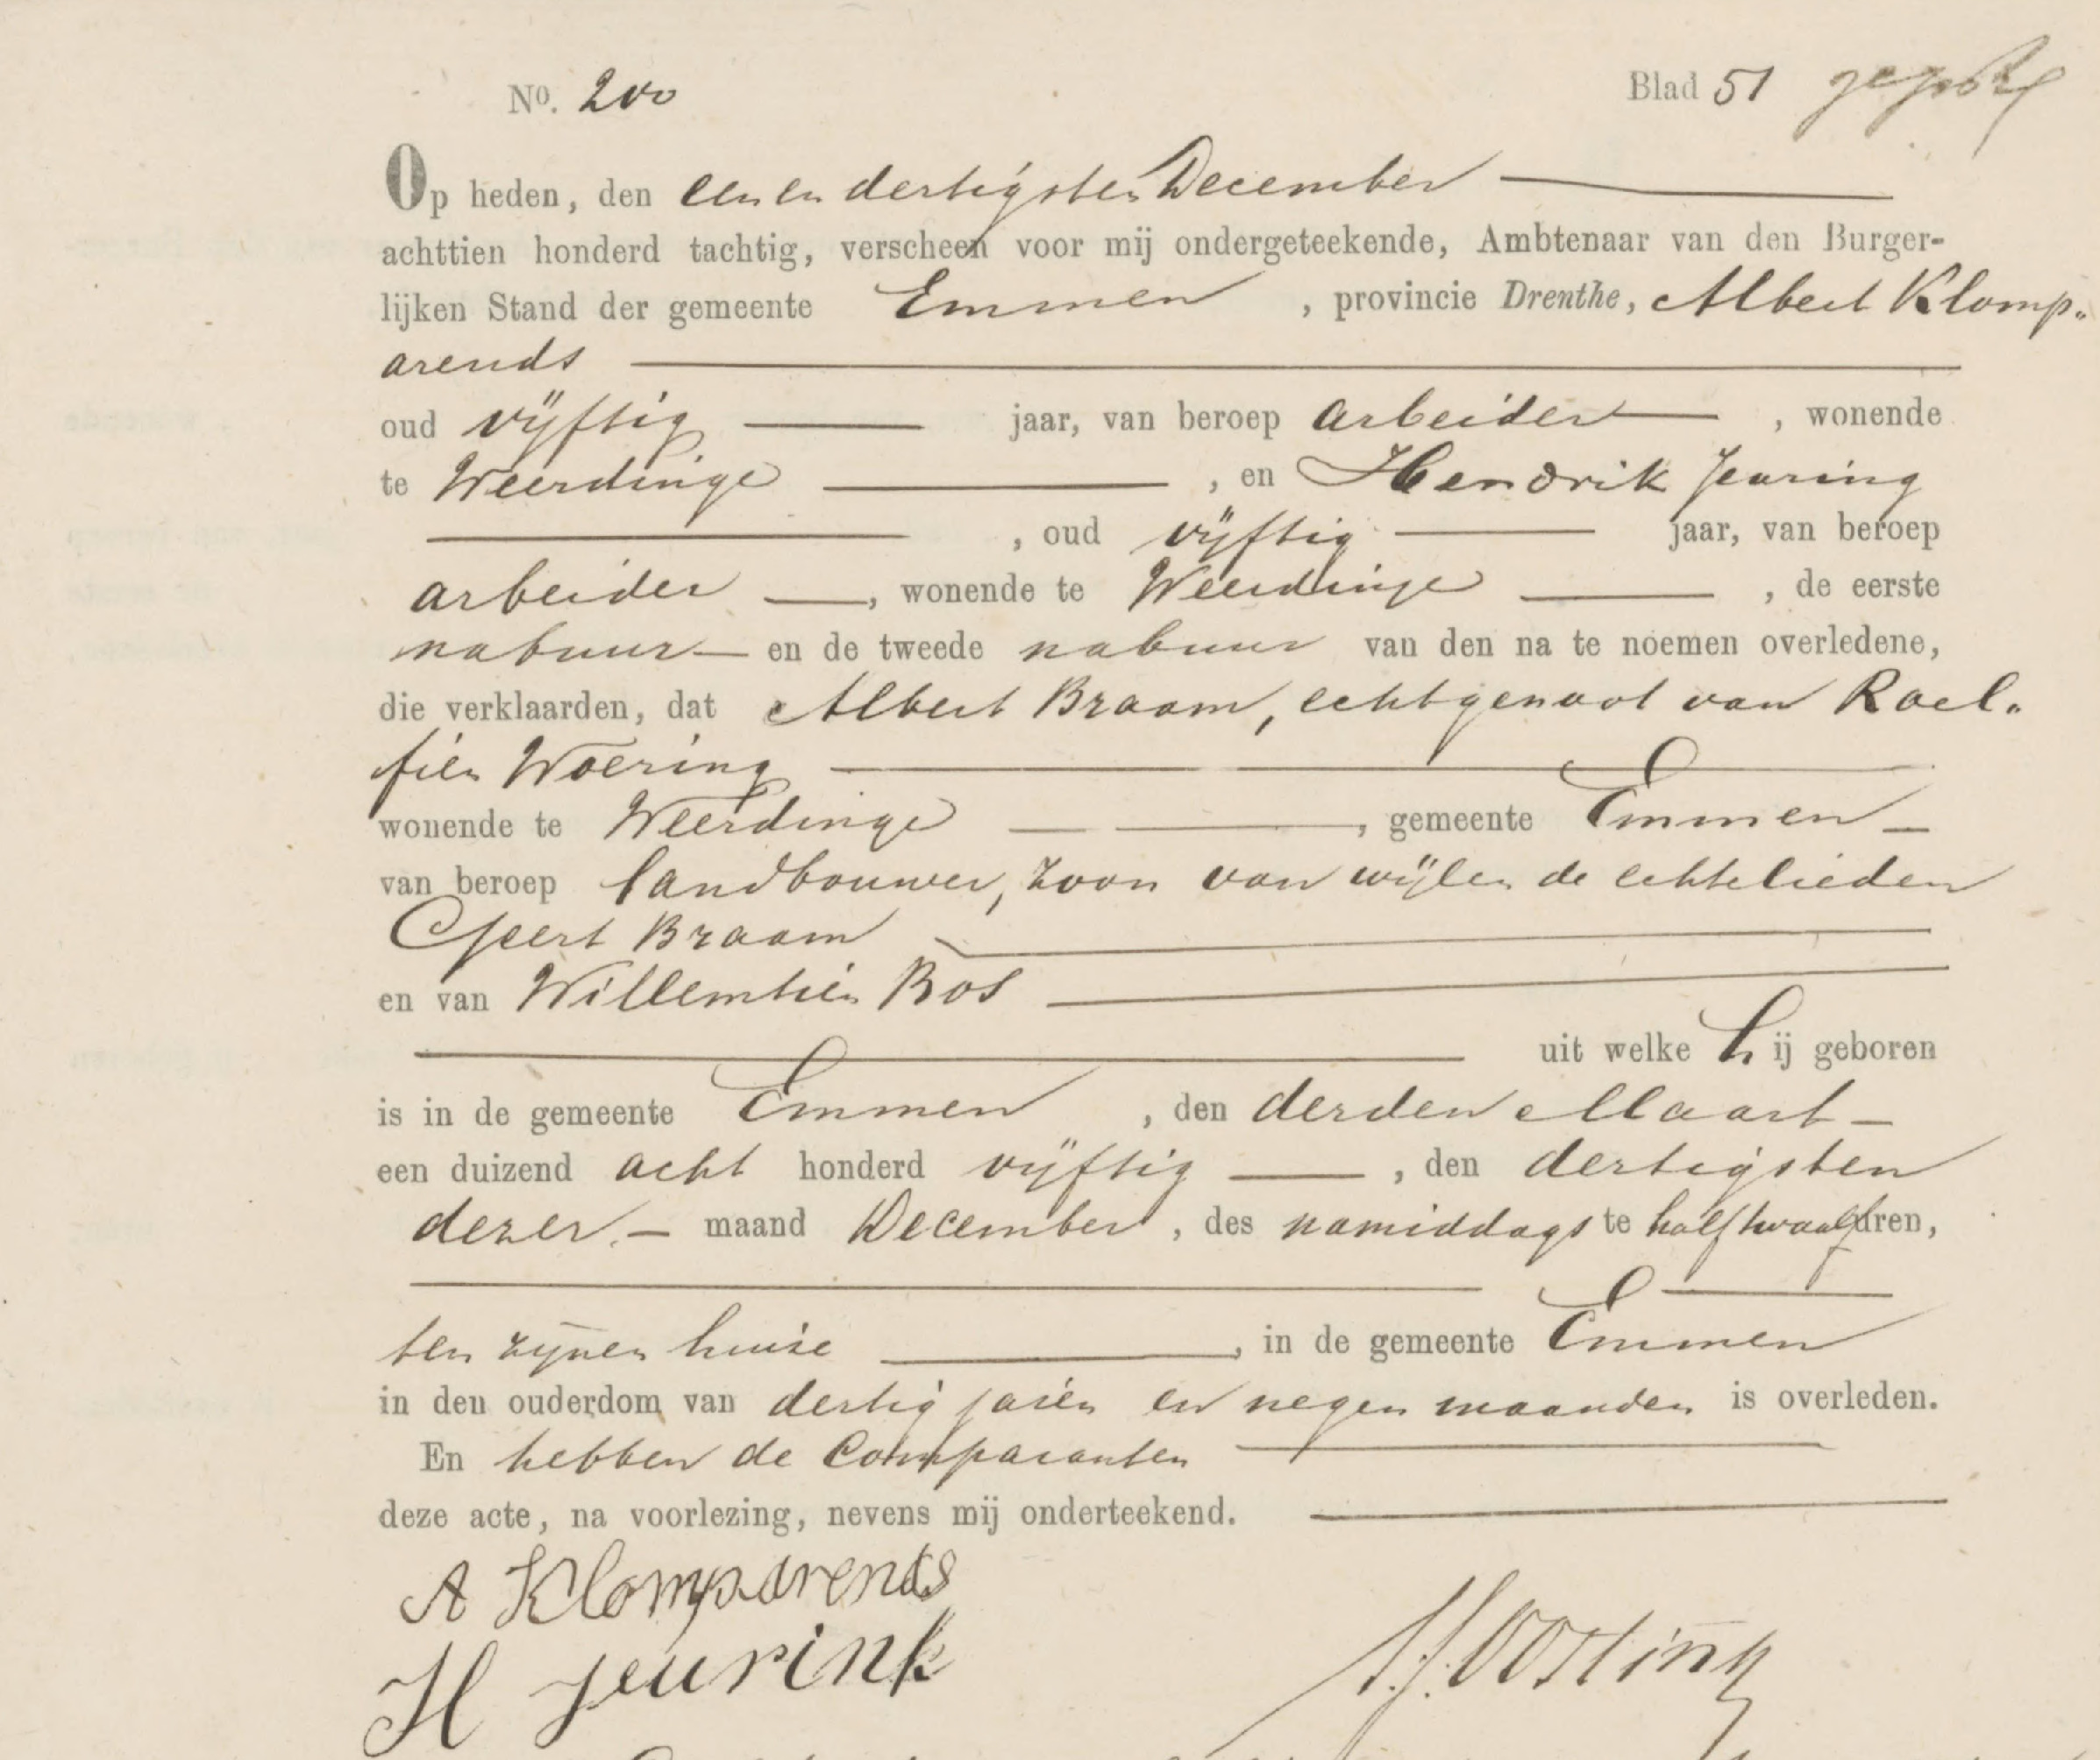 No. 200
Blad 51
Op heden, den een en dertigsten December
achttien honderd tachtig, verscheen voor mij ondergeteekende, Ambtenaar van den Burger-
lijken Stand der gemeente Emmen, provincie Drenthe, Albert Klomp„
arends
oud vijftig jaar, van beroep arbeider, wonende
te Weerdinge, en Hendrik Jeuring
, oud vijftig jaar, van beroep
arbeider, wonende te Weerdinge, de eerste
nabuur en de tweede nabuur van den na te noemen overledene,
die verklaarden, dat Albert Braam, echtgenoot van Roel„
fien Woering
wonende te Weerdinge, gemeente Emmen
van beroep landbouwer, zoon van wijlen de echtelieden
Geert Braam
en van Willemtien Bos
uit welke hij geboren
is in de gemeente Emmen, den derden Maart
een duizend acht honderd vijftig, den dertigsten
dezer maand December, des namiddags te half twaalf uren,
ten zijnen huise, in de gemeente Emmen
in den ouderdom van dertig jaren en negen maanden is overleden.
En hebben de Comparanten
deze acte, na voorlezing, nevens mij onderteekend.
A Klomparends
H Jeurink
Oosting